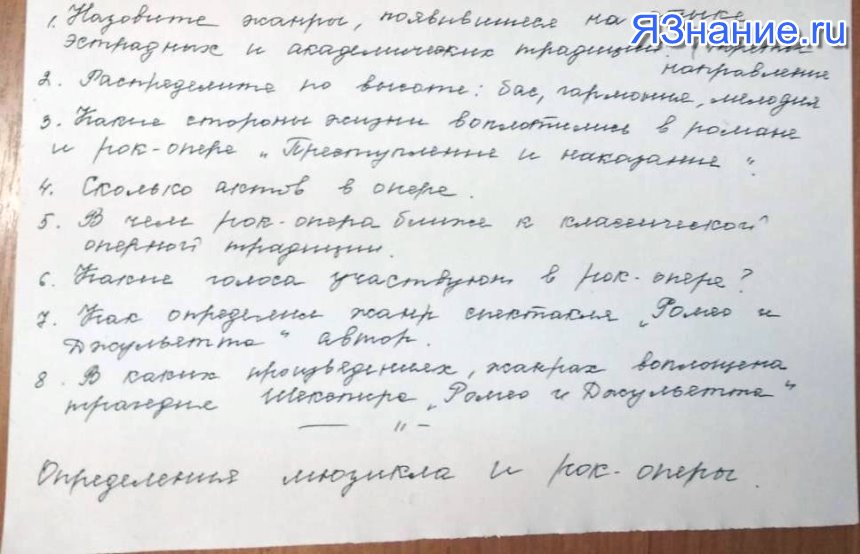 1. Назовите жанры, появившиеся на стыке
ЯЗнание.ru
эстрадных и академических традиций (третье
направление
2. Распределите по высоте: бас, гармония, мелодия
3. Какие стороны жизни воплотились в романе
и рок-опере „Преступление и наказание".
4. Сколько актов в опере.
5. В чем рок-опера ближе к классической
оперной традиции.
6. Какие голоса участвуют в рок-опере?
7. Как определил жанр спектакля „Ромео и
Джульетта" автор.
8. В каких произведениях, жанрах воплощена
трагедия Шекспира „Ромео и Джульетта"
— " –
Определения мюзикла и рок-оперы.